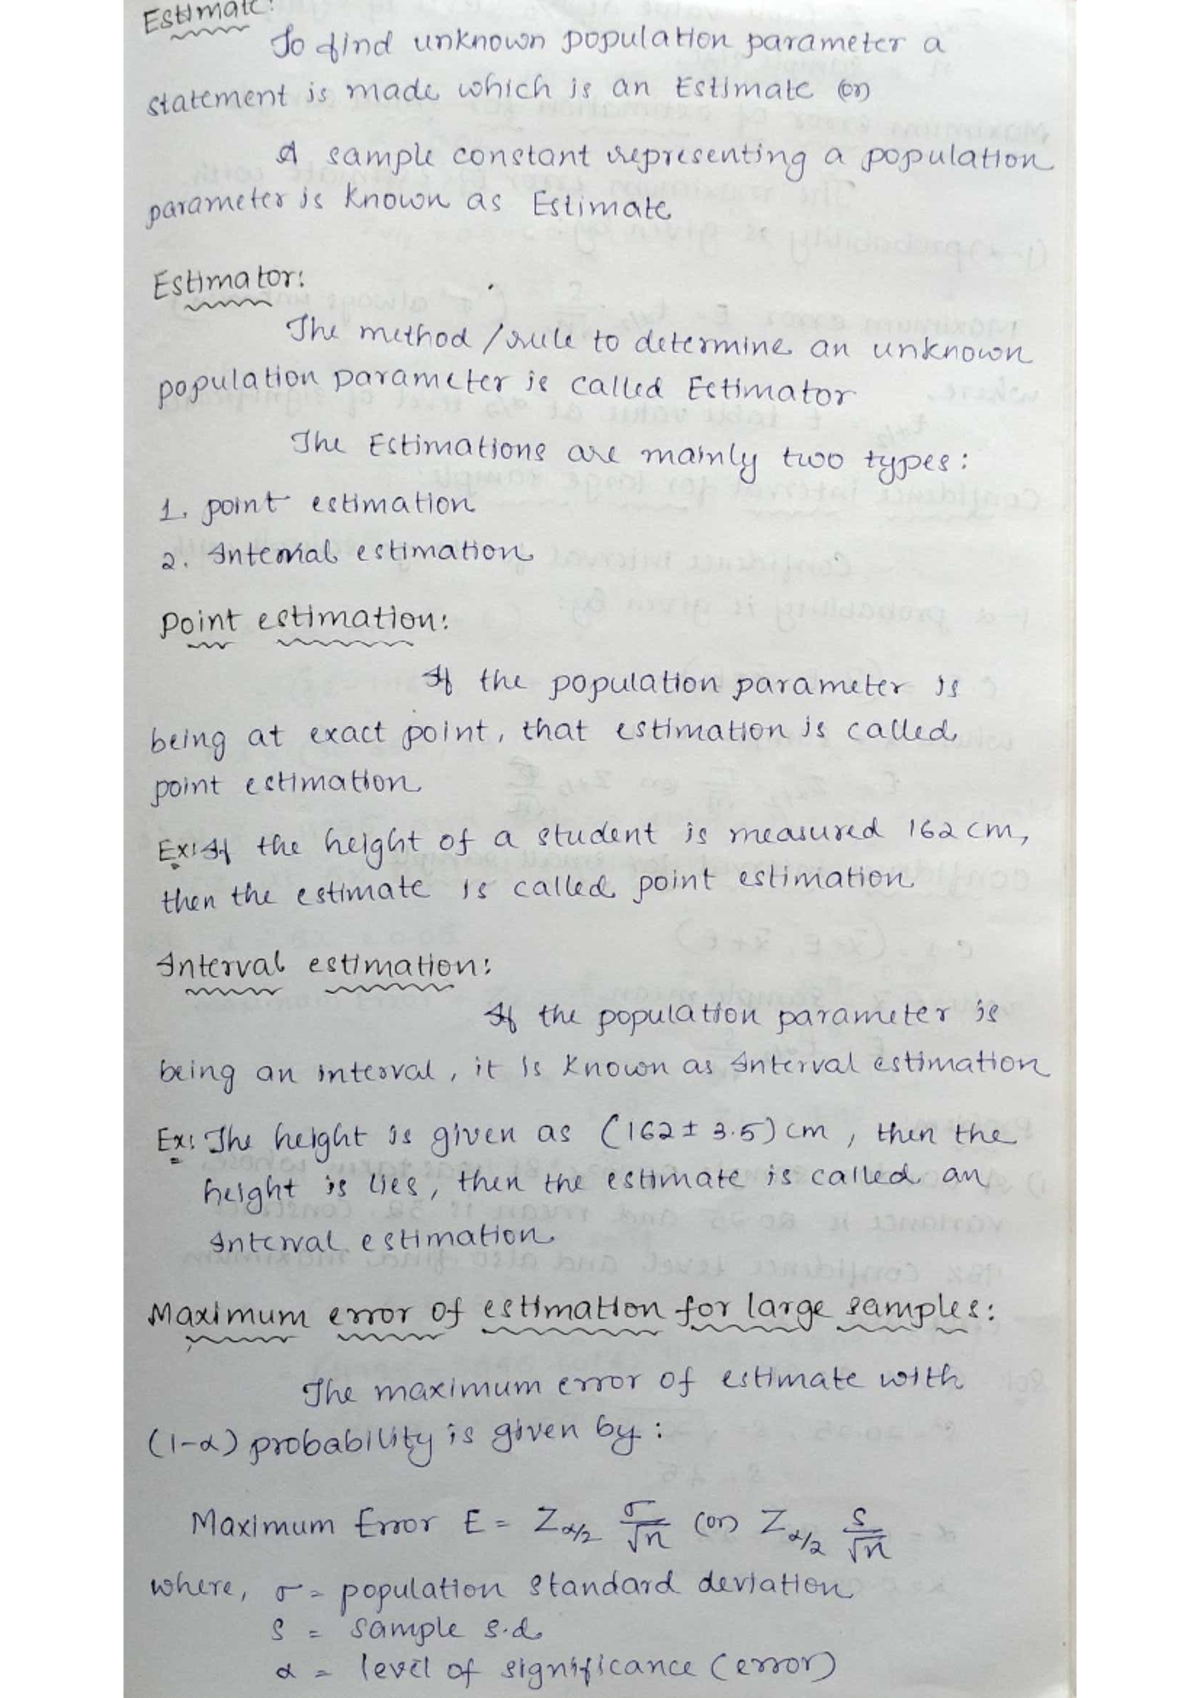 Estimate:
To find unknown population parameter a
statement is made which is an Estimate (or)
A sample constant representing a population
parameter is known as Estimate
Estimator:
The method / rule to determine an unknown
population parameter is called Estimator
The Estimations are mainly two types:
1. point estimation
2. Interval estimation
Point estimation:
If the population parameter is
being at exact point, that estimation is called
point estimation
Ex: If the height of a student is measured 162 cm,
then the estimate is called point estimation
Interval estimation:
If the population parameter is
being an interval, it is known as Interval estimation
Ex: The height is given as (162 ± 3.5) cm, then the
height is lies, then the estimate is called an
Interval estimation
Maximum error of estimation for large samples:
The maximum error of estimate with
(1-α) probability is given by:
Maximum Error E = Z_{α/2} σ/√n (or) Z_{α/2} S/√n
where, σ = population standard deviation
S = sample s.d
α = level of significance (error)